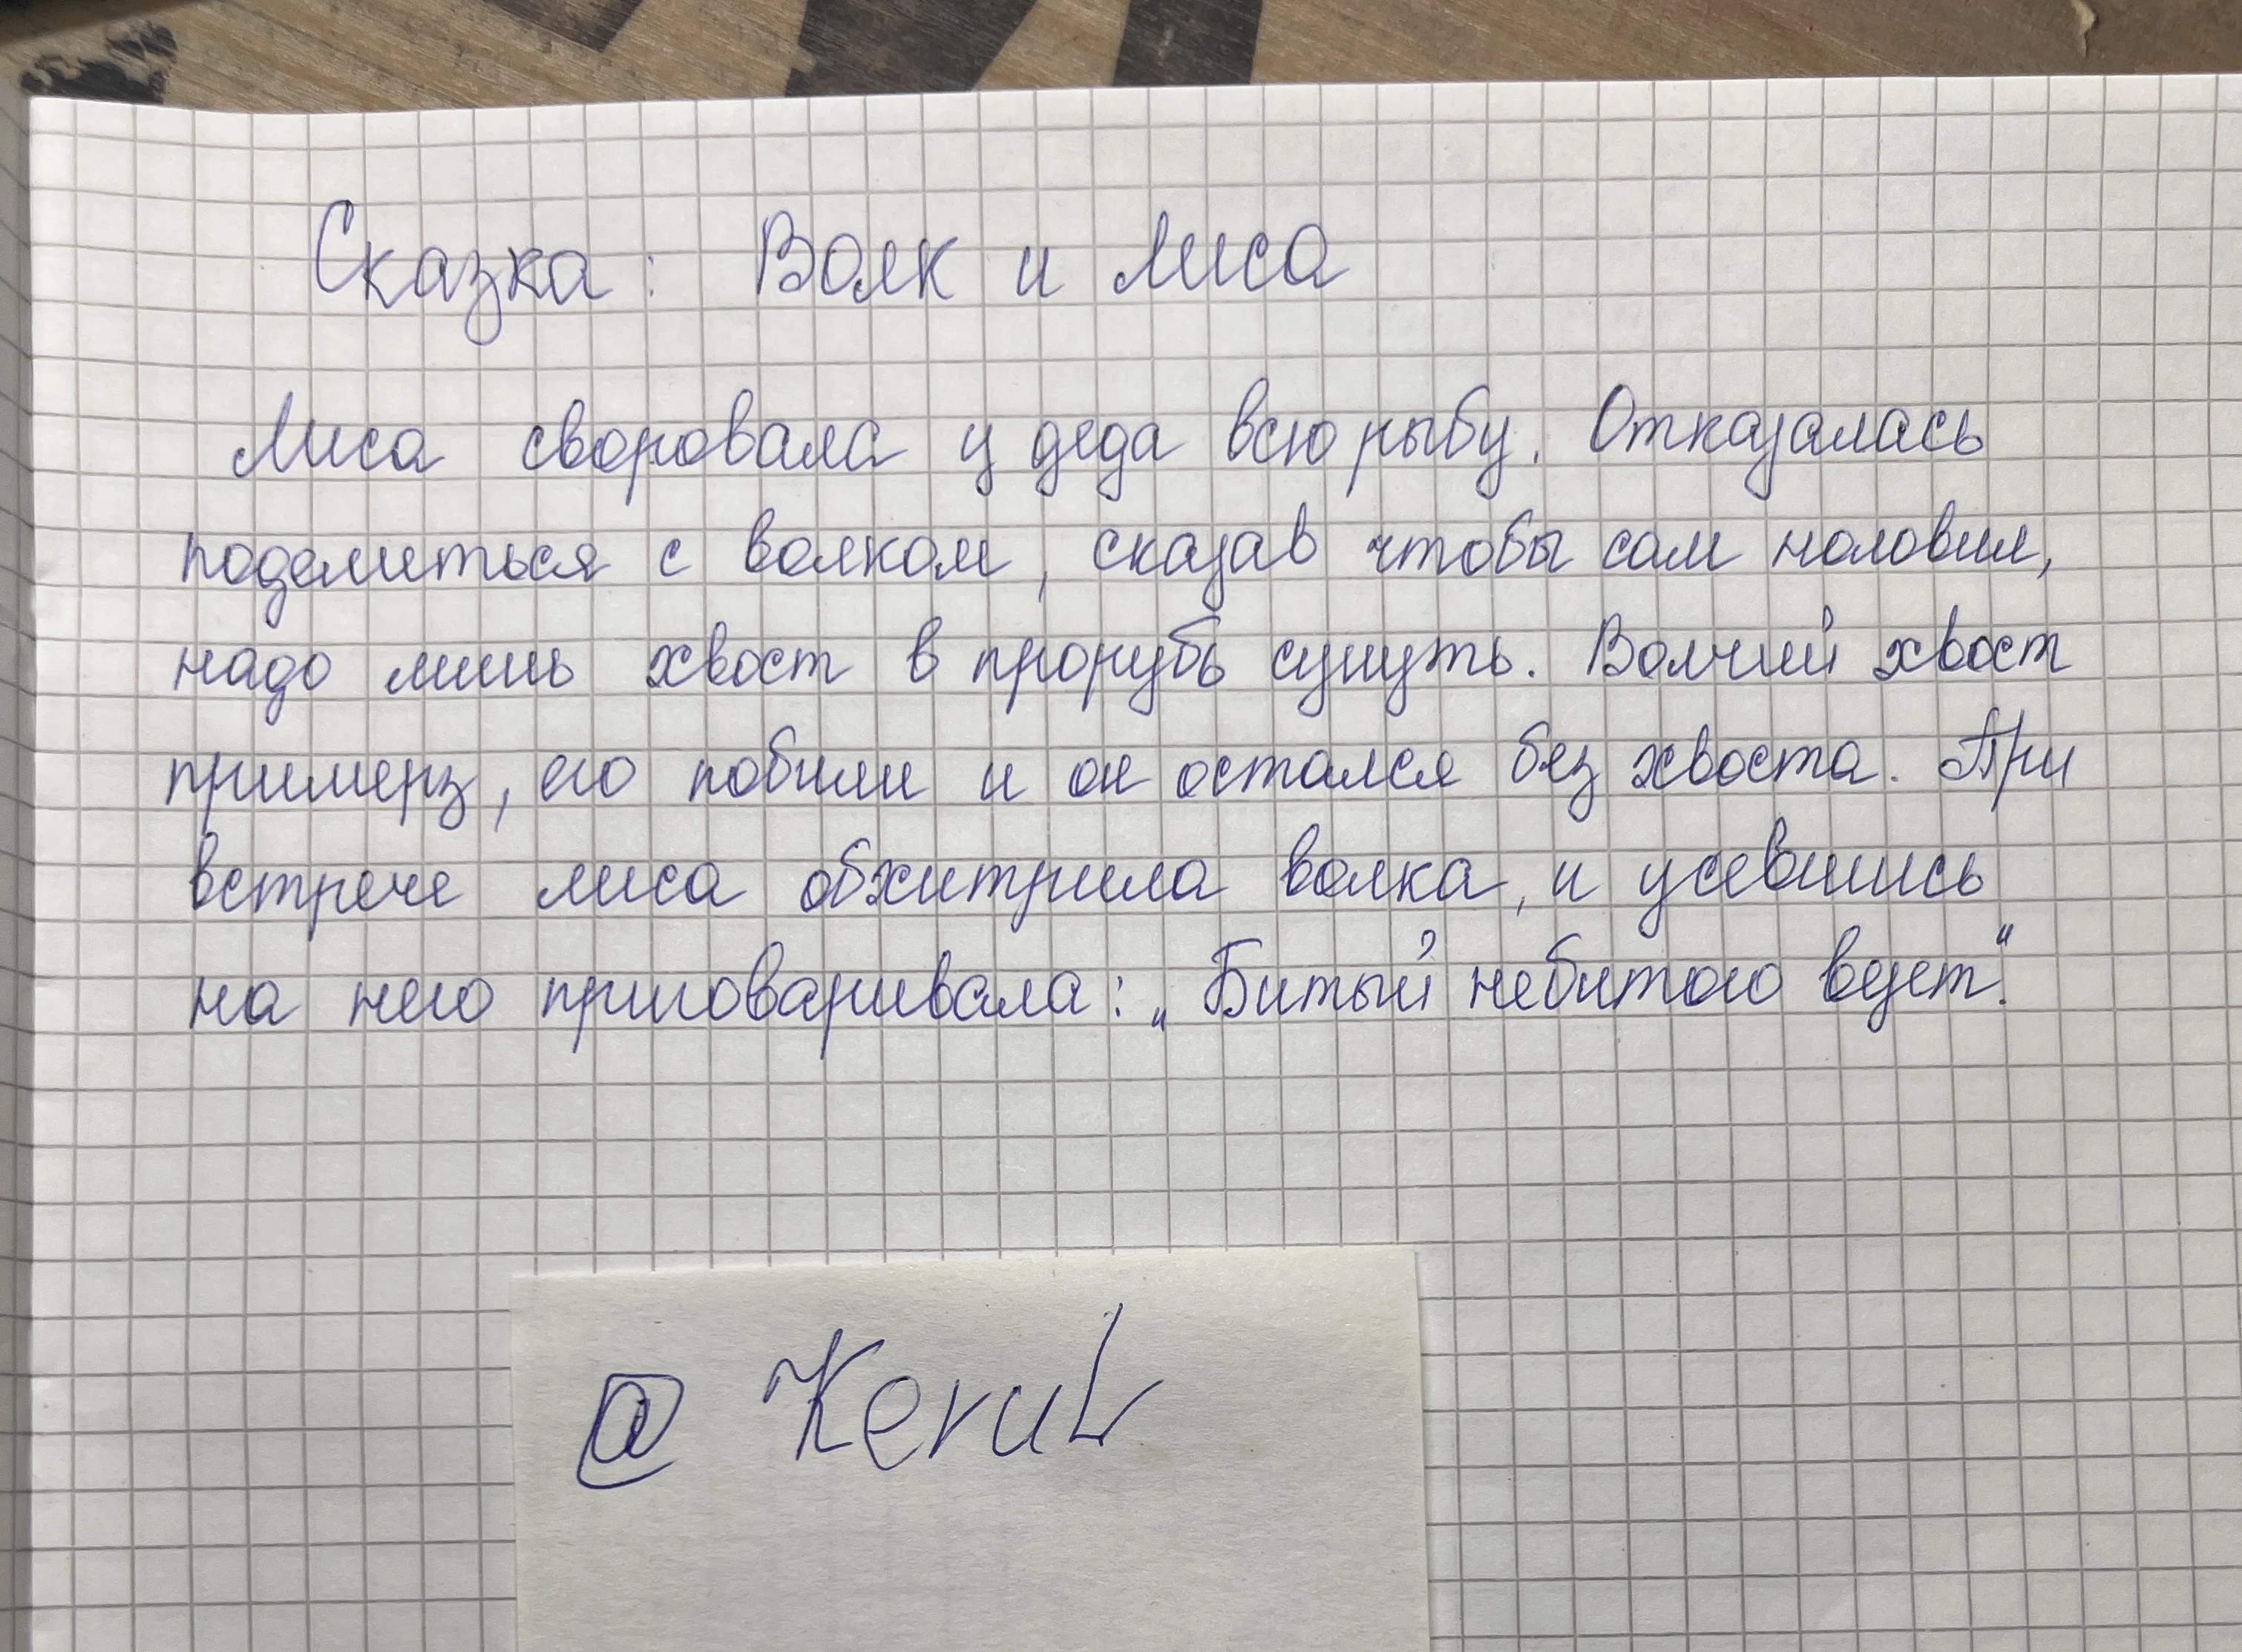 Сказка: Волк и лиса
Лиса своровала у деда всю рыбу. Отказалась
поделиться с волком, сказав чтобы сам наловил,
надо лишь хвост в прорубь сунуть. Волчий хвост
примерз, его побили и он остался без хвоста. При
встрече лиса обхитрила волка, и усевшись
на него приговаривала: „Битый небитого везет."
@ Kerub